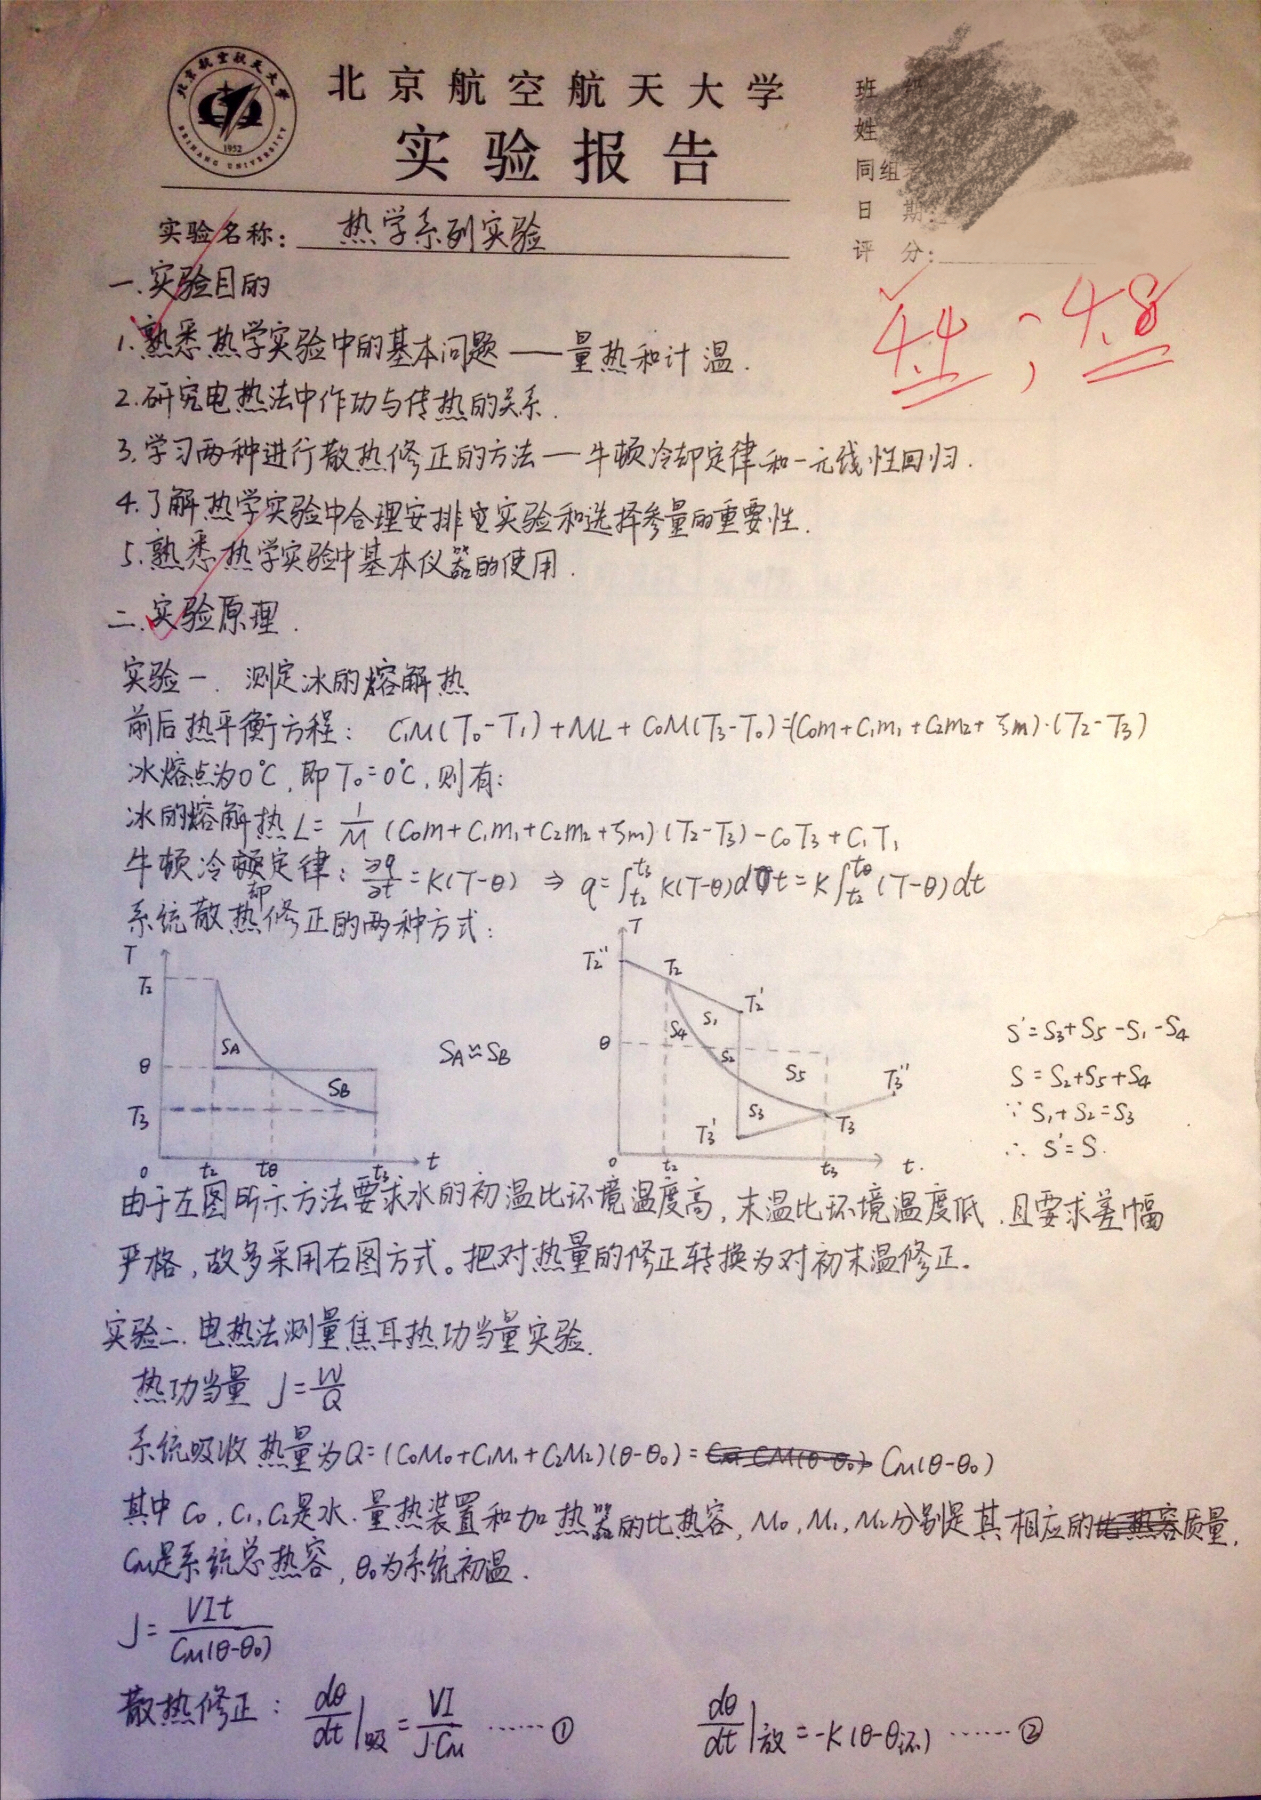 北京航空航天大学
BEIHANG UNIVERSITY
1952
北京航空航天大学
实验报告
班
姓
同组
日 期:
评 分:
实验名称: 热学系列实验
4.4 ; 4.8
一.实验目的
1.熟悉热学实验中的基本问题——量热和计温.
2.研究电热法中作功与传热的关系.
3.学习两种进行散热修正的方法—牛顿冷却定律和一元线性回归.
4.了解热学实验中合理安排实验和选择参量的重要性.
5.熟悉热学实验中基本仪器的使用.
二.实验原理.
实验一. 测定冰的熔解热
前后热平衡方程: C₁M(T₀-T₁)+ML+C₀M(T₃-T₀)=(C₀m+C₁m₁+C₂m₂+ζm)·(T₂-T₃)
冰熔点为0℃,即T₀=0℃,则有:
冰的熔解热 L= 1/M (C₀m+C₁m₁+C₂m₂+ζm)·(T₂-T₃)-C₀T₃+C₁T₁
牛顿冷却定律: ∂q/∂t=K(T-θ) ⇒ q=∫t₂^t₃ K(T-θ)dt=K∫t₂^tθ (T-θ)dt
系统散热修正的两种方式:
T T₂ θ T₃ 0 t₂ tθ t₃ t SA SB
SA≈SB
T T₂'' T₂ T₂' θ S₁ S₄ S₂ S₅ S₃ T₃' T₃ T₃'' 0 t₂ t₃ t.
S'=S₃+S₅-S₁-S₄
S=S₂+S₅+S₄
∵S₁+S₂=S₃
∴ S'=S.
由于左图所示方法要求水的初温比环境温度高,末温比环境温度低,且要求差幅
严格,故多采用右图方式。把对热量的修正转换为对初末温修正.
实验二.电热法测量焦耳热功当量实验.
热功当量 J=W/Q
系统吸收热量为Q=(C₀M₀+C₁M₁+C₂M₂)(θ-θ₀)=Cm(θ-θ₀)
其中C₀,C₁,C₂是水.量热装置和加热器的比热容,M₀,M₁,M₂分别是其相应的质量,
Cm是系统总热容,θ₀为系统初温.
J=VIt/Cm(θ-θ₀)
散热修正: dθ/dt|吸=VI/J·Cm ……① dθ/dt|放=-K(θ-θ环) ……②